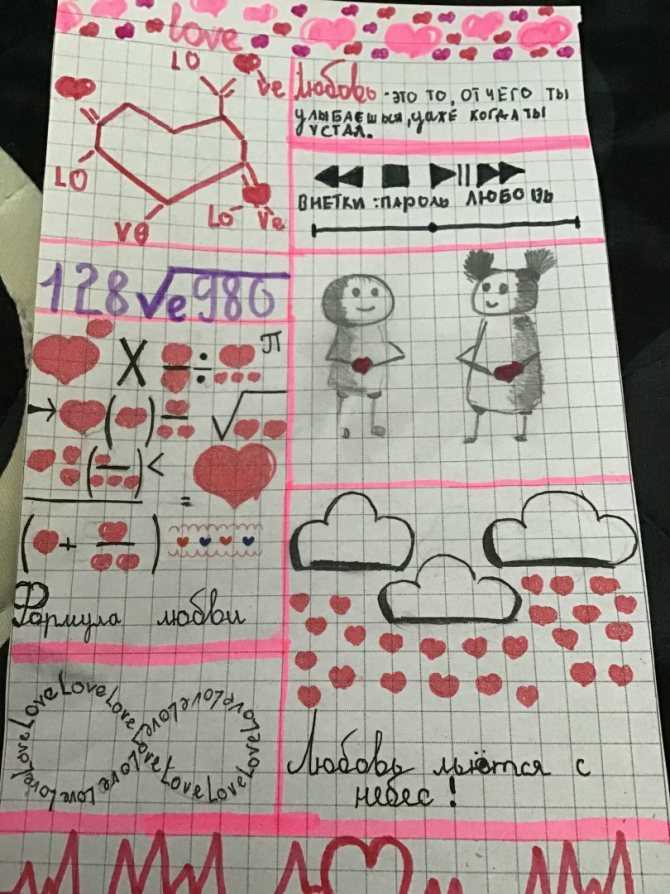 love
LO
ve
LO
ve
Lo
ve
Любовь - это то, от чего ты
улыбаешься, даже когда ты
устал.
ВНЕТКИ : ПАРОЛЬ ЛЮБОВЬ
128√e980
X ÷ П
( ) = √
( ) <
=
( + )
Формула любви
LoveLoveLoveLoveLoveLoveLoveLoveLoveLoveLoveLove
Любовь льётся с
небес!